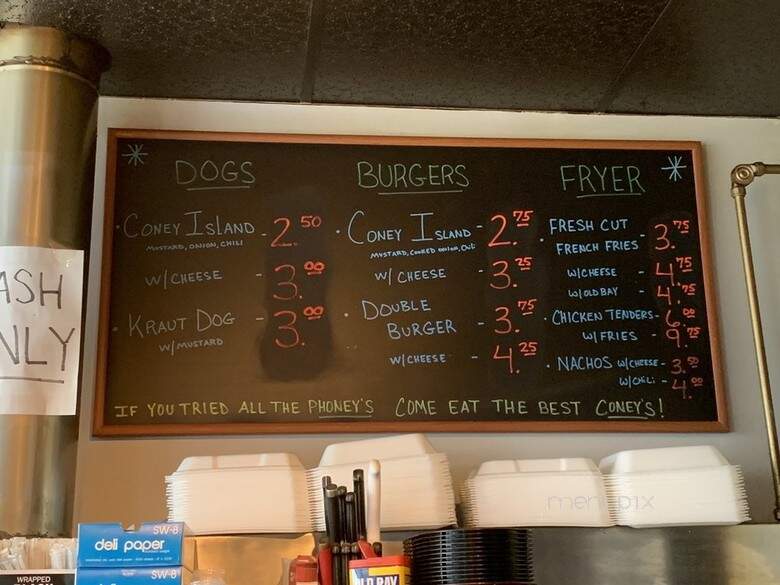 DOGS
CONEY ISLAND - 2.50
MUSTARD, ONION, CHILI
W/CHEESE - 3.00
KRAUT DOG - 3.00
W/MUSTARD
BURGERS
CONEY ISLAND - 2.75
MUSTARD, COOKED ONION,
W/ CHEESE - 3.25
DOUBLE
BURGER - 3.75
W/CHEESE - 4.25
FRYER
FRESH CUT
FRENCH FRIES - 3.75
W/CHEESE - 4.75
W/OLD BAY - 4.75
CHICKEN TENDERS - 6.00
W/ FRIES - 9.75
NACHOS W/CHEESE - 3.50
W/CHILI - 4.00
IF YOU TRIED ALL THE PHONEY'S COME EAT THE BEST CONEY'S!
ASH
NLY
SW-8
deli paper
SW-8
WRAPPED
OLD BAY
menupix